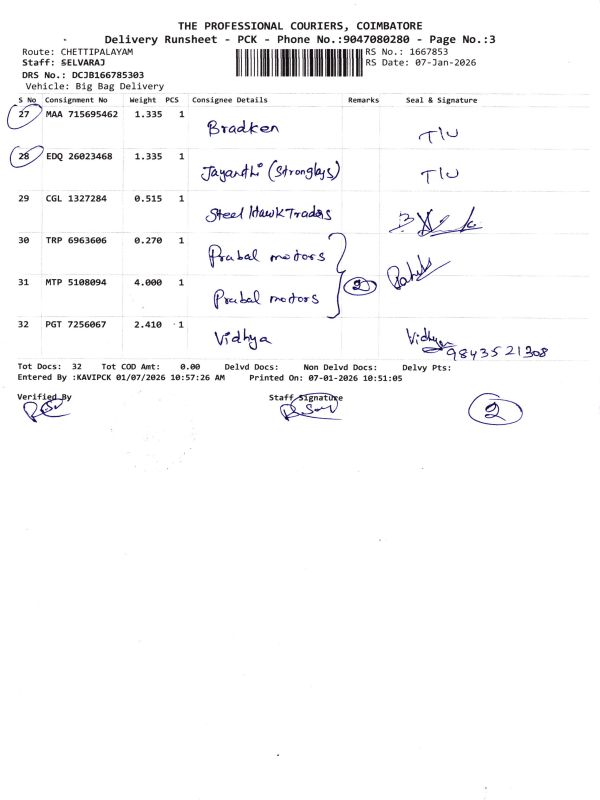 THE PROFESSIONAL COURIERS, COIMBATORE
Delivery Runsheet - PCK - Phone No.:9047080280 - Page No.:3
Route: CHETTIPALAYAM RS No.: 1667853
Staff: SELVARAJ RS Date: 07-Jan-2026
DRS No.: DCJB166785303
Vehicle: Big Bag Delivery
S No Consignment No Weight PCS Consignee Details Remarks Seal & Signature
27 MAA 715695462 1.335 1 Bradken T/U
28 EDQ 26023468 1.335 1 Jayanthi (Stronglass) T/U
29 CGL 1327284 0.515 1 Steel Hawk Traders
30 TRP 6963606 0.270 1 Prabal motors
31 MTP 5108094 4.000 1 Prabal motors 2
32 PGT 7256067 2.410 1 Vidhya Vidhya
9843521308
Tot Docs: 32 Tot COD Amt: 0.00 Delvd Docs: Non Delvd Docs: Delvy Pts:
Entered By :KAVIPCK 01/07/2026 10:57:26 AM Printed On: 07-01-2026 10:51:05
Verified By Staff Signature
2